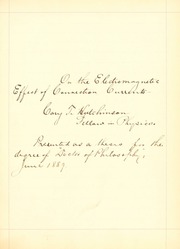 On the Electromagnetic
Effect of Convection Currents
Cary T. Hutchinson
Fellow in Physics
Presented as a thesis for the
degree of Doctor of Philosophy,
June 1889